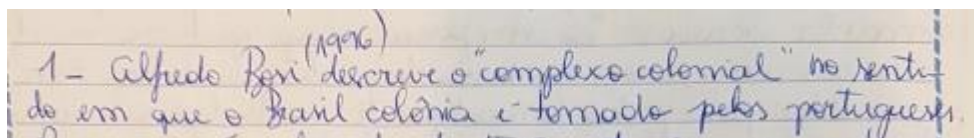 (1996)
1- Alfredo Bosi descreve o "complexo colonial" no senti-
do em que o Brasil colônia é tomado pelos portugueses.